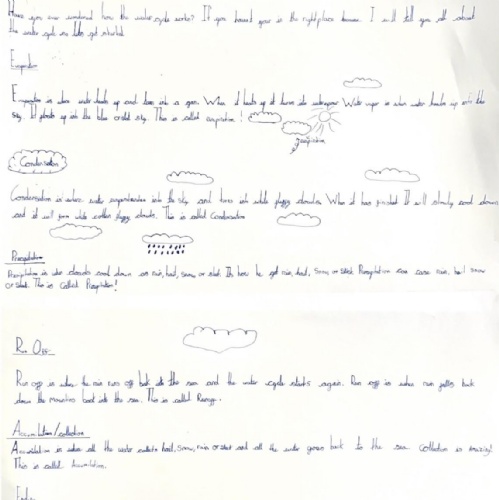 Have you ever wondered how the water cycle works? If you havent your in the right place because I will tell you all about
the water cycle so lets get started.
Evaporation
Evaporation is when water heats up and turns into a gas. When it heats up it turns into watervapour. Water vapor is when water heats up into the
sky. It floats up into the blue sky. This is called evaporation!
Evaporation
Condensation
Condensation is when water into the sky and turns into white fluffy clouds. When it has It will slowly cool down
and it will form white cotton fluffy clouds. This is called Condensation
Precipitation
Precipitation is when clouds cool down as rain, hail, snow or sleet. Its how we get rain, hail, snow or sleet. Precipitation can rain, hail snow
or sleet. This is called Precipitation!
Run Off
Run off is when the rain runs off back into the sea and the water cycle starts again. Run off is when rain falls back
down the mountains back into the sea. This is called
Accumulation/collection
Accumulation is when all the water collects hail, snow, rain or sleet and all the water goes back to the sea. Collection is amazing!
This is called Accumulation.